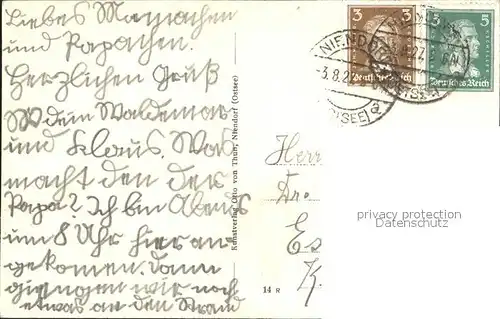 Liebes Mamachen
und Papachen.
Herzlichen Gruß
dein Waldemar
und Klaus. Was
macht den der
Papa? Ich bin Abends
um 8 Uhr hier an
gekomen. Dann
giengen wir noch
etwas an den Strand
Kunstverlag Otto von Thun, Niendorf (Ostsee)
14 R
3
Deutsches Reich
5
Deutsches Reich
NIENDORF
3.8.27
(OSTSEE)
a
Herr
Dr.
privacy protection
Datenschutz